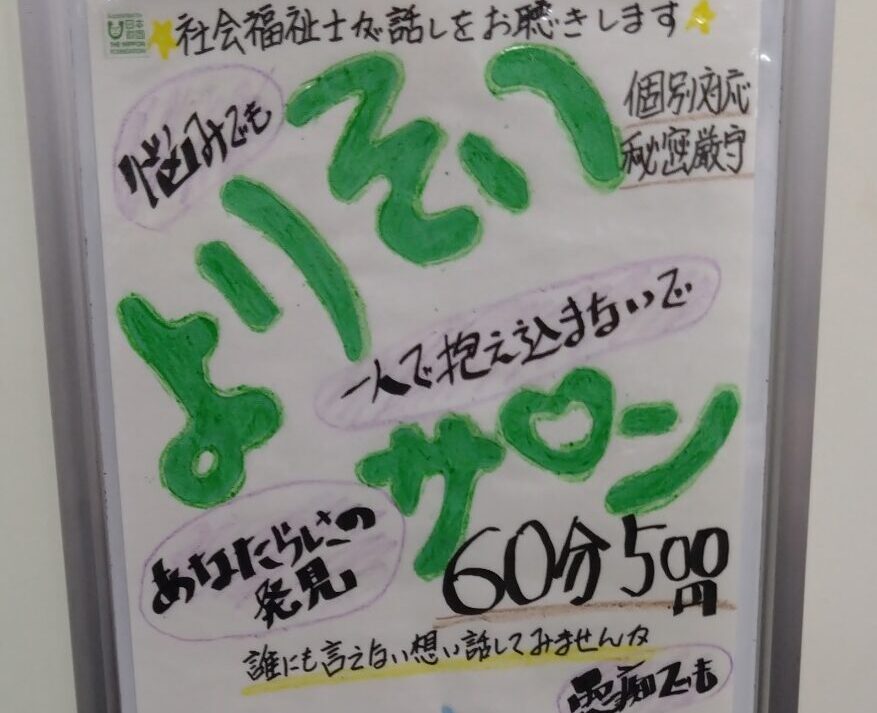 日本財団
THE NIPPON FOUNDATION
社会福祉士が話しをお聴きします
悩みでも
個別対応
秘密厳守
よりそい
一人で抱え込まないで
サロン
あなたらしさの
発見
60分500円
誰にも言えない想い話してみませんか
愚痴でも